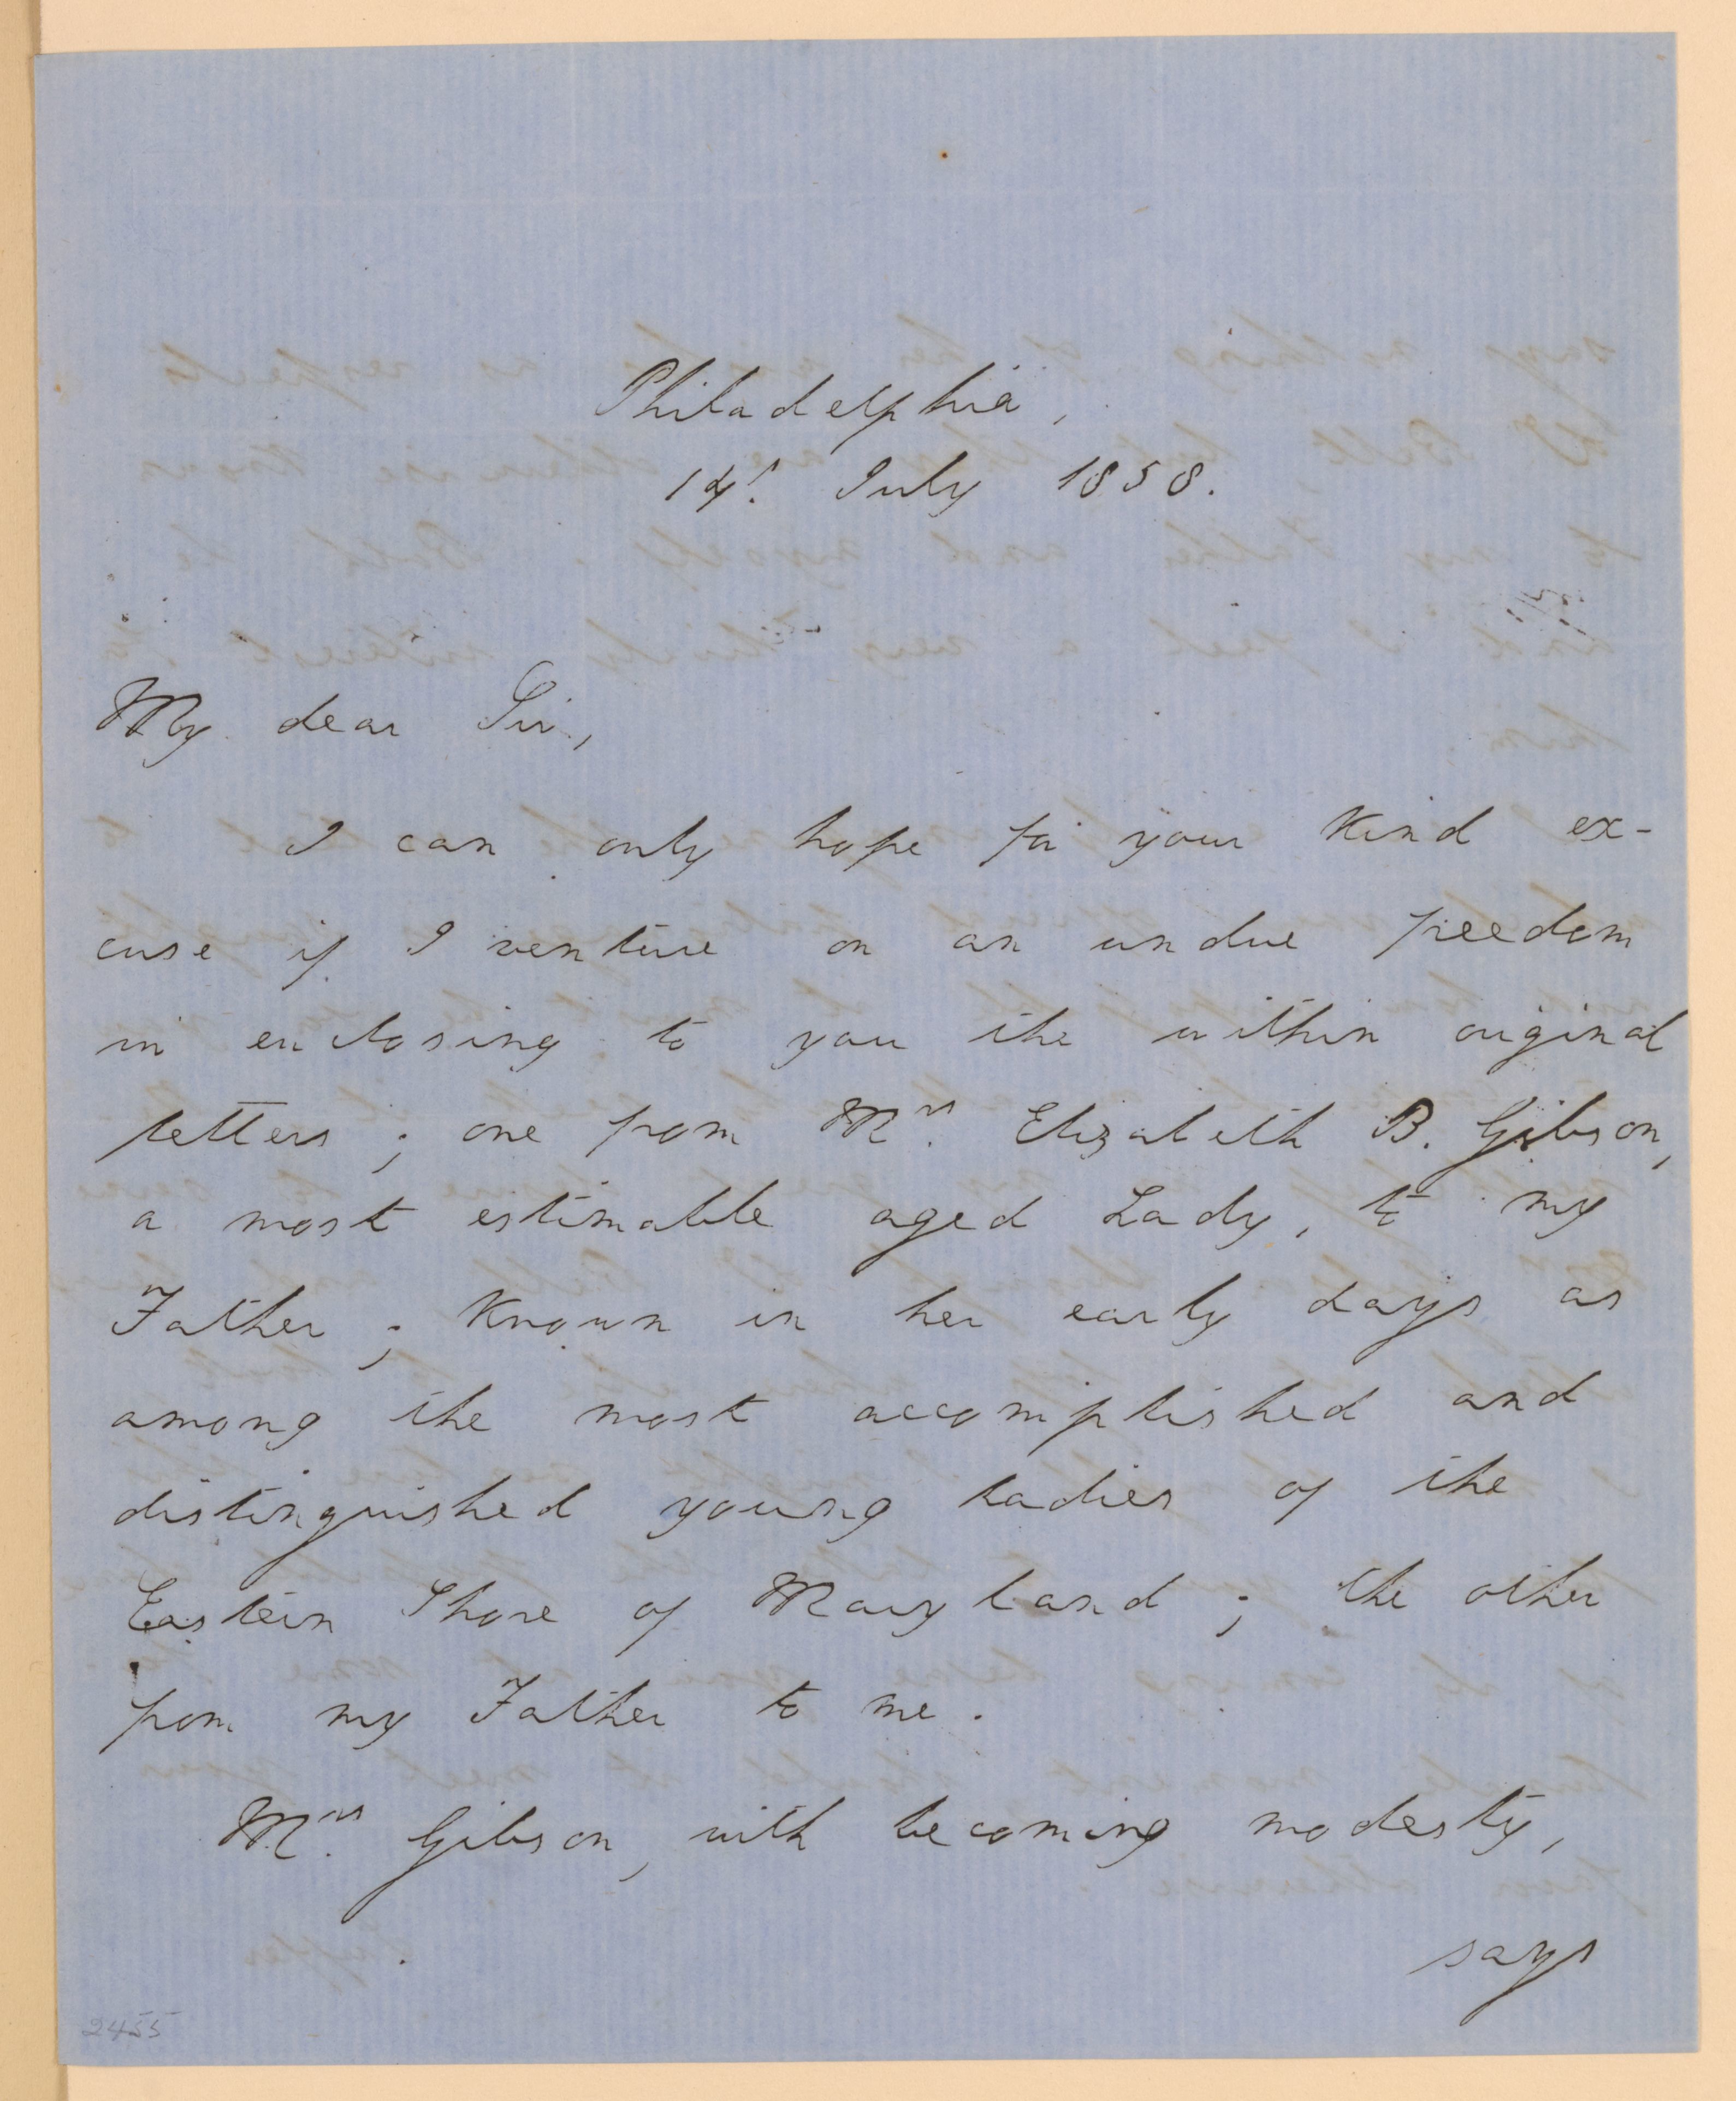 Philadelphia,
14! July 1858.
My dear Sir,
I can only hope for your kind ex-
cuse if I venture on an undue freedom
in enclosing to you the within original
letters; one from Mrs. Elizabeth B. Gibson,
a most estimable aged Lady, to my
Father; known in her early days as
among the most accomplished and
distinguished young ladies of the
Eastern Shore of Maryland; the other
from my Father to me.
Mrs. Gibson, with becoming modesty,
says
2455